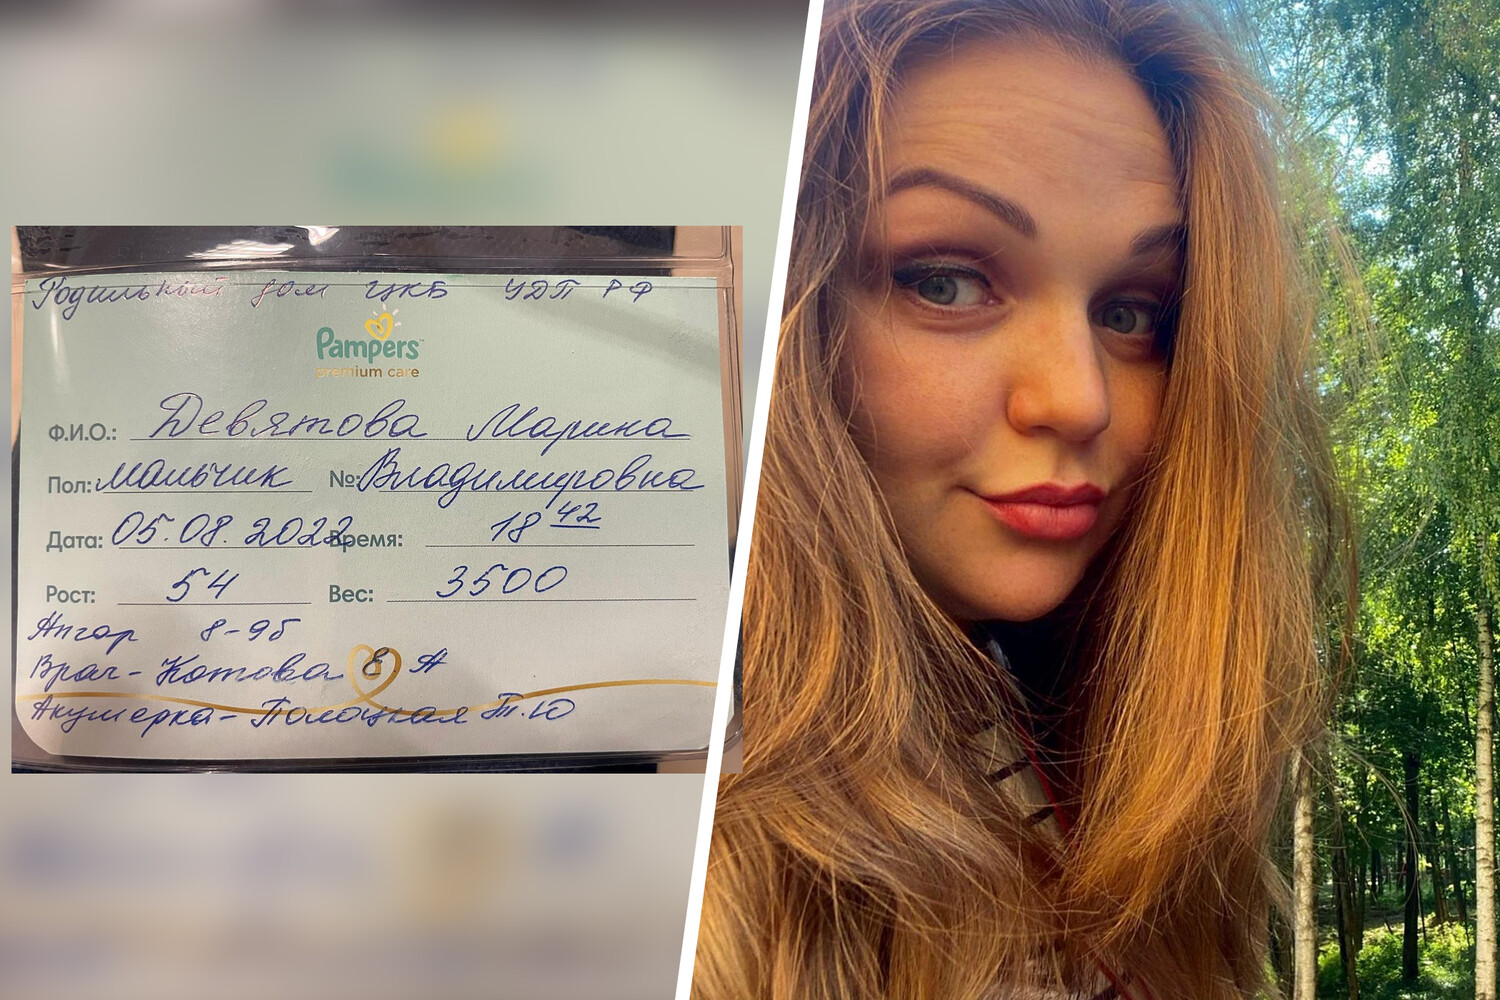 Родильный дом ЦКБ УДП РФ
Pampers™
premium care
Ф.И.О.: Девятова Марина
Пол: мальчик №: Владимировна
Дата: 05.08.2022 Время: 18 42
Рост: 54 Вес: 3500
Апгар 8-9б
Врач - Котова Е А
Акушерка - Полоцкая Т.Ю